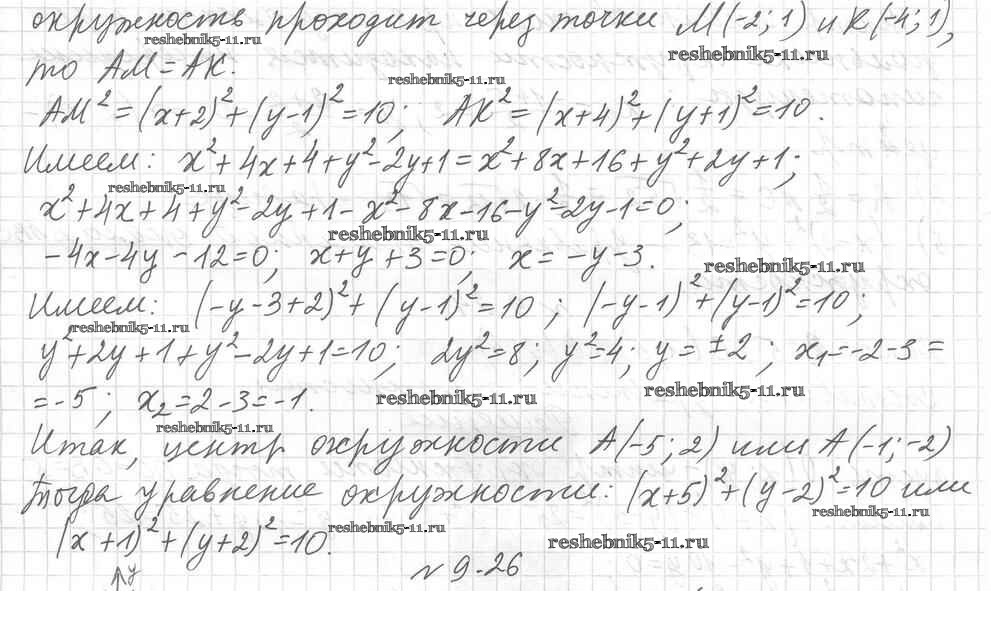 окружность проходит через точки M(-2; 1) и K(-4; 1),
reshebnik5-11.ru
reshebnik5-11.ru
то AM = AK.
reshebnik5-11.ru
AM² = (x+2)² + (y-1)² = 10; AK² = (x+4)² + (y+1)² = 10.
Имеем: x² + 4x + 4 + y² - 2y + 1 = x² + 8x + 16 + y² + 2y + 1;
reshebnik5-11.ru
x² + 4x + 4 + y² - 2y + 1 - x² - 8x - 16 - y² - 2y - 1 = 0;
reshebnik5-11.ru
-4x - 4y - 12 = 0; x + y + 3 = 0; x = -y - 3.
reshebnik5-11.ru
Имеем: (-y - 3 + 2)² + (y - 1)² = 10; (-y - 1)² + (y - 1)² = 10;
reshebnik5-11.ru
y² + 2y + 1 + y² - 2y + 1 = 10; 2y² = 8; y² = 4; y = ±2; x₁ = -2 - 3 =
reshebnik5-11.ru
= -5; x₂ = 2 - 3 = -1.
reshebnik5-11.ru
reshebnik5-11.ru
Итак, центр окружности A(-5; 2) или A(-1; -2)
Тогда уравнение окружности: (x+5)² + (y-2)² = 10 или
reshebnik5-11.ru
(x + 1)² + (y + 2)² = 10.
reshebnik5-11.ru
reshebnik5-11.ru
N 9.26
y